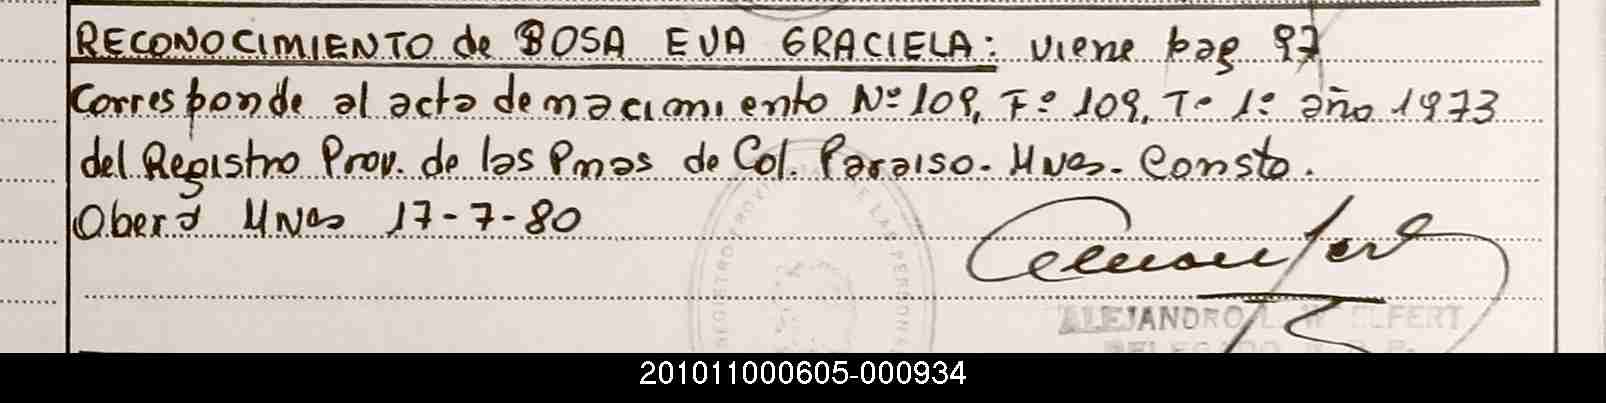 RECONOCIMIENTO de BOSA EVA GRACIELA: viene pag 97
Corresponde al acta de nacimiento Nº 109, Fº 109, Tº 1º año 1973
del Registro Prov. de las Pnas de Col. Paraiso. Mnes. Consto.
Oberá Mnes 17-7-80
REGISTRO PROVINCIAL DE LAS PERSONAS
ALEJANDRO ELFERT
DELEGADO
201011000605-000934